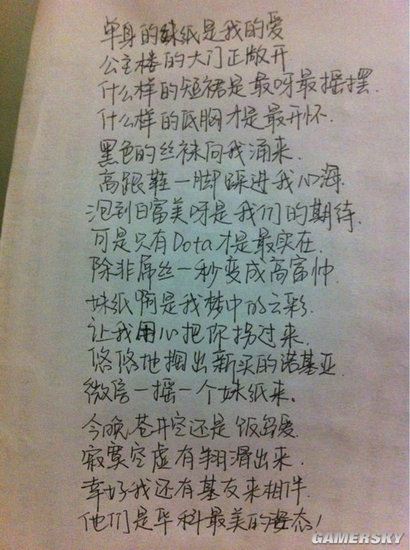 单身的妹纸是我的爱
公主楼的大门正敞开
什么样的短裙是最呀最摇摆.
什么样的低胸才是最开怀.
黑色的丝袜向我涌来.
高跟鞋一脚踩进我心海.
泡到白富美呀是我们的期待.
可是只有Dota才是最实在.
除非屌丝一秒变成高富帅.
妹纸啊是我梦中的云彩.
让我用心把你拐过来.
悠悠地掏出新买的诺基亚.
微信一摇一个妹纸来.
今晚苍井空还是饭岛爱.
寂寞空虚有翔滑出来.
幸好我还有基友来相伴.
他们是华科最美的姿态!
GAMERSKY